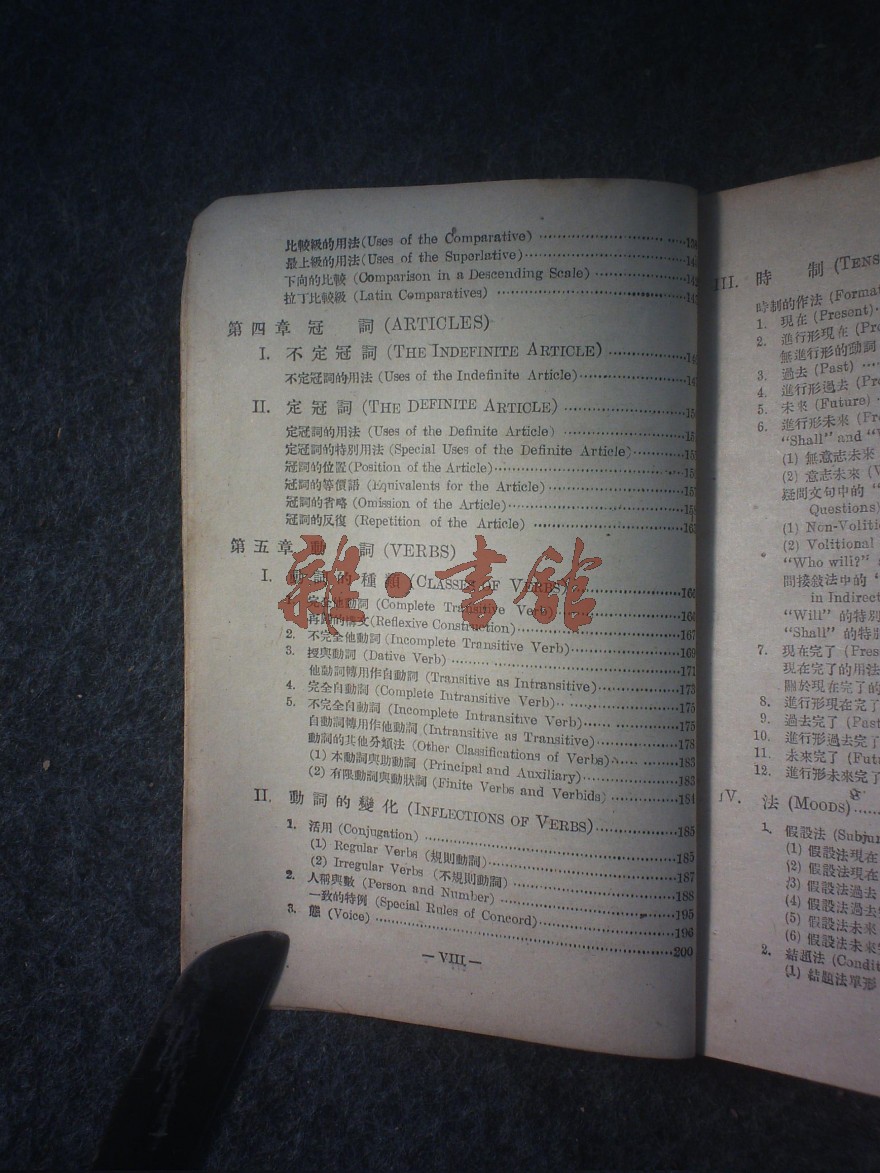 比較級的用法(Uses of the Comparative)
最上級的用法(Uses of the Superlative)
下向的比較 (Comparison in a Descending Scale) 142
拉丁比較級 (Latin Comparatives) 143
第四章 冠 詞 (ARTICLES)
I. 不定冠詞 (THE INDEFINITE ARTICLE)
不定冠詞的用法 (Uses of the Indefinite Article)
II. 定冠詞 (THE DEFINITE ARTICLE)
定冠詞的用法 (Uses of the Definite Article)
定冠詞的特別用法 (Special Uses of the Definite Article)
冠詞的位置(Position of the Article)
冠詞的等價語 (Equivalents for the Article)
冠詞的省略 (Omission of the Article)
冠詞的反復 (Repetition of the Article) 163
第五章 動 詞 (VERBS)
I. 動詞的種類 (CLASSES OF VERBS) 166
1. 完全他動詞 (Complete Transitive Verb) 166
(Reflexive Construction) 167
2. 不完全他動詞 (Incomplete Transitive Verb) 169
3. 授與動詞 (Dative Verb) 171
他動詞轉用作自動詞 (Transitive as Intransitive) 173
4. 完全自動詞 (Complete Intransitive Verb) 175
5. 不完全自動詞 (Incomplete Intransitive Verb) 175
自動詞轉用作他動詞 (Intransitive as Transitive) 178
動詞的其他分類法 (Other Classifications of Verbs) 183
(1) 本動詞與助動詞 (Principal and Auxiliary) 183
(2) 有限動詞與動狀詞 (Finite Verbs and Verbids) 184
II. 動詞的變化 (INFLECTIONS OF VERBS) 185
1. 活用 (Conjugation) 185
(1) Regular Verbs (規則動詞) 187
(2) Irregular Verbs (不規則動詞) 188
2. 人稱與數 (Person and Number) 195
一致的特例 (Special Rules of Concord) 196
3. 態 (Voice) 200
— VIII —
雜·書館
III. 時 制 (TENS
時制的作法 (Format
1. 現在 (Present)
2. 進行形現在 (Pr
無進行形的動詞
3. 過去 (Past)
4. 進行形過去 (Pr
5. 未來 (Future)
6. 進行形未來 (Fr
"Shall" and "
(1) 無意志未來
(2) 意志未來 (V
疑問文句中的 "
Questions)
(1) Non-Voliti
(2) Volitional
"Who will?"
間接敘法中的 "
in Indirect
"Will" 的特別
"Shall" 的特
7. 現在完了 (Pres
現在完了的用法
關於現在完了的
8. 進行形現在完了
9. 過去完了 (Past
10. 進行形過去完了
11. 未來完了 (Futu
12. 進行形未來完了
IV. 法 (MOODS)
1. 假設法 (Subjun
(1) 假設法現在
(2) 假設法現在
(3) 假設法過去
(4) 假設法過去
(5) 假設法未來
(6) 假設法未來
2. 結題法 (Condit
(1) 結題法單形